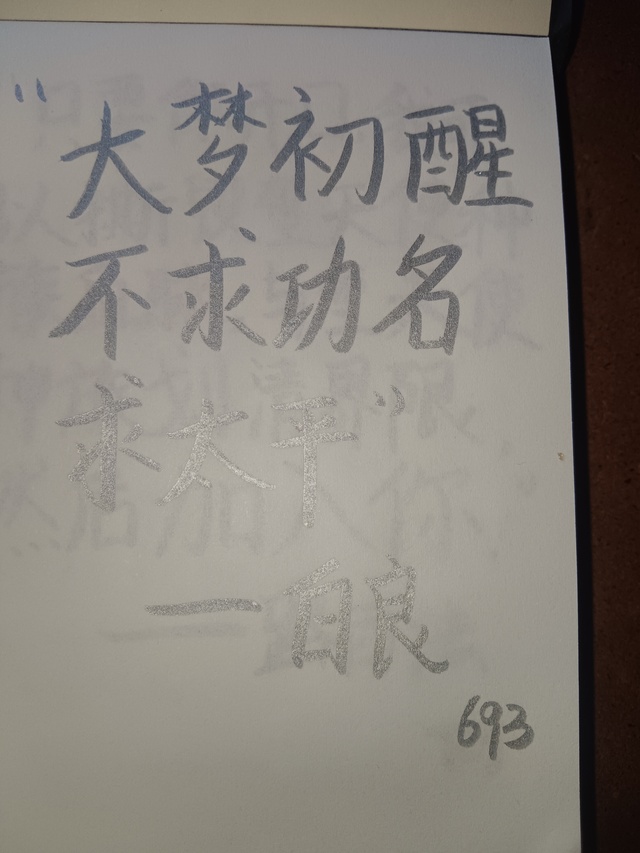 “大梦初醒
不求功名
求太平”
一白良
693